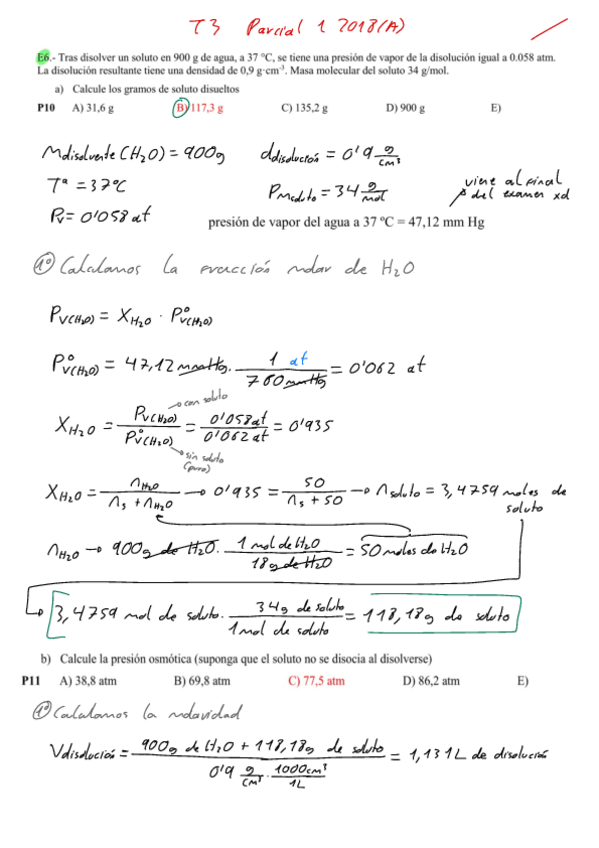 T3 Parcial 1 2018(A)
E6.- Tras disolver un soluto en 900 g de agua, a 37 ºC, se tiene una presión de vapor de la disolución igual a 0.058 atm.
La disolución resultante tiene una densidad de 0,9 g·cm⁻³. Masa molecular del soluto 34 g/mol.
a) Calcule los gramos de soluto disueltos
P10 A) 31,6 g B) 117,3 g C) 135,2 g D) 900 g E)
Mdisolvente (H₂O) = 900g ddisolución = 0'9 g/cm³
Tª = 37ºC PMsoluto = 34 g/mol viene al final del examen xd
Pv = 0'058 at presión de vapor del agua a 37 ºC = 47,12 mm Hg
1º Calculamos la fracción molar de H₂O
Pv(H₂O) = XH₂O · Pºv(H₂O)
Pºv(H₂O) = 47,12 mmHg · 1 at / 760 mmHg = 0'062 at
con soluto
XH₂O = Pv(H₂O) / Pºv(H₂O) = 0'058at / 0'062at = 0'935
sin soluto
(puro)
XH₂O = nH₂O / ns + nH₂O → 0'935 = 50 / ns + 50 → nsoluto = 3,4759 moles de soluto
nH₂O → 900g de H₂O · 1 mol de H₂O / 18g de H₂O = 50 moles de H₂O
3,4759 mol de soluto · 34g de soluto / 1 mol de soluto = 118,18g de soluto
b) Calcule la presión osmótica (suponga que el soluto no se disocia al disolverse)
P11 A) 38,8 atm B) 69,8 atm C) 77,5 atm D) 86,2 atm E)
1º Calculamos la molaridad
Vdisolución = 900g de H₂O + 118,18g de soluto / 0'9 g/cm³ · 1000cm³/1L = 1,131L de disolución